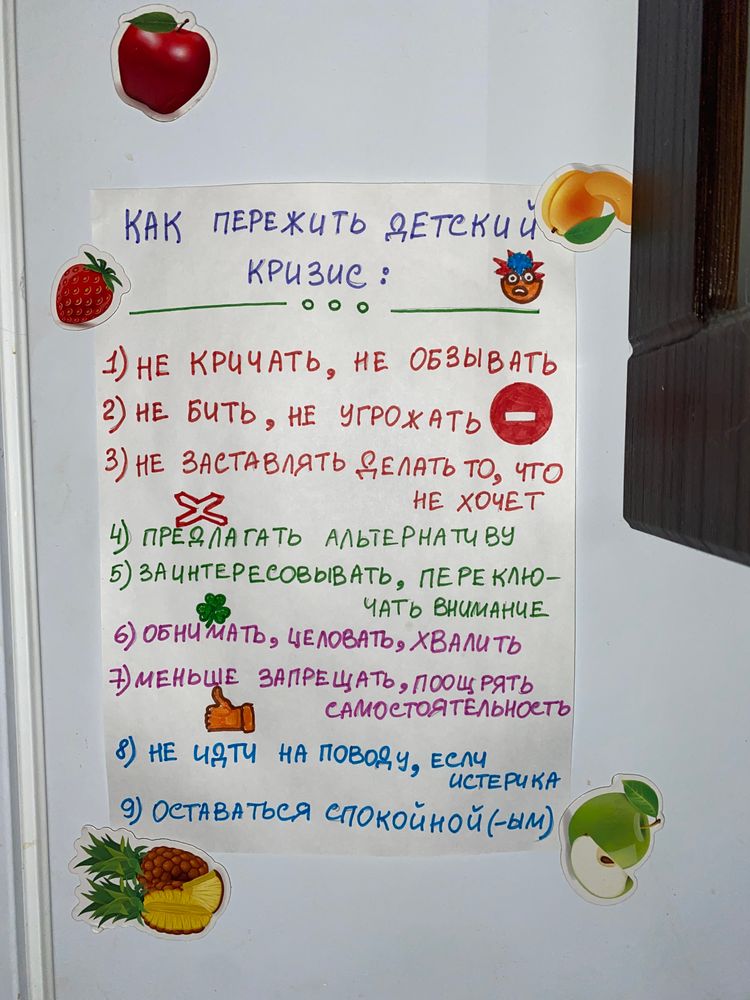 КАК ПЕРЕЖИТЬ ДЕТСКИЙ
КРИЗИС:
1) НЕ КРИЧАТЬ, НЕ ОБЗЫВАТЬ
2) НЕ БИТЬ, НЕ УГРОЖАТЬ
3) НЕ ЗАСТАВЛЯТЬ ДЕЛАТЬ ТО, ЧТО
НЕ ХОЧЕТ
4) ПРЕДЛАГАТЬ АЛЬТЕРНАТИВУ
5) ЗАИНТЕРЕСОВЫВАТЬ, ПЕРЕКЛЮ-
ЧАТЬ ВНИМАНИЕ
6) ОБНИМАТЬ, ЦЕЛОВАТЬ, ХВАЛИТЬ
7) МЕНЬШЕ ЗАПРЕЩАТЬ, ПООЩРЯТЬ
САМОСТОЯТЕЛЬНОСТЬ
8) НЕ ИДТИ НА ПОВОДУ, ЕСЛИ
ИСТЕРИКА
9) ОСТАВАТЬСЯ СПОКОЙНОЙ (-ЫМ)